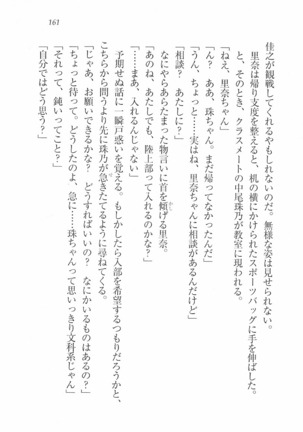 161
佳之が観戦してくれるやもしれないのだ。無様な姿は見せられない。
里奈は帰り支度を整えると、机の横にかけられたスポーツバッグに手を伸ばした。
と、そのとき、クラスメートの中尾珠乃が教室に現われる。
「ねえ、里奈ちゃん」
「ん？　ああ、珠ちゃん。まだ帰ってなかったんだ」
「うん、ちょっと……実はね、里奈ちゃんに相談があるんだけど」
「相談？　あたしに？」
なにやらあらたまった物言いに首を傾げる里奈。
「あのね、あたしでも、陸上部って入れるのかな？」
「……まあ、入れるんじゃない」
予期せぬ話に一瞬戸惑いを覚える。もしかしたら入部を希望するつもりだろうかと、
こちらから問うより先に珠乃が急きたてるように尋ねてくる。
「じゃあ、お願いできるかな？　どうすればいいの？　なにかいるものはあるの？」
「ちょっと待って。どうしたのよ、急に……珠ちゃんって思いっきり文科系じゃん」
「それって、鈍いってこと？」
「自分ではどう思う？」